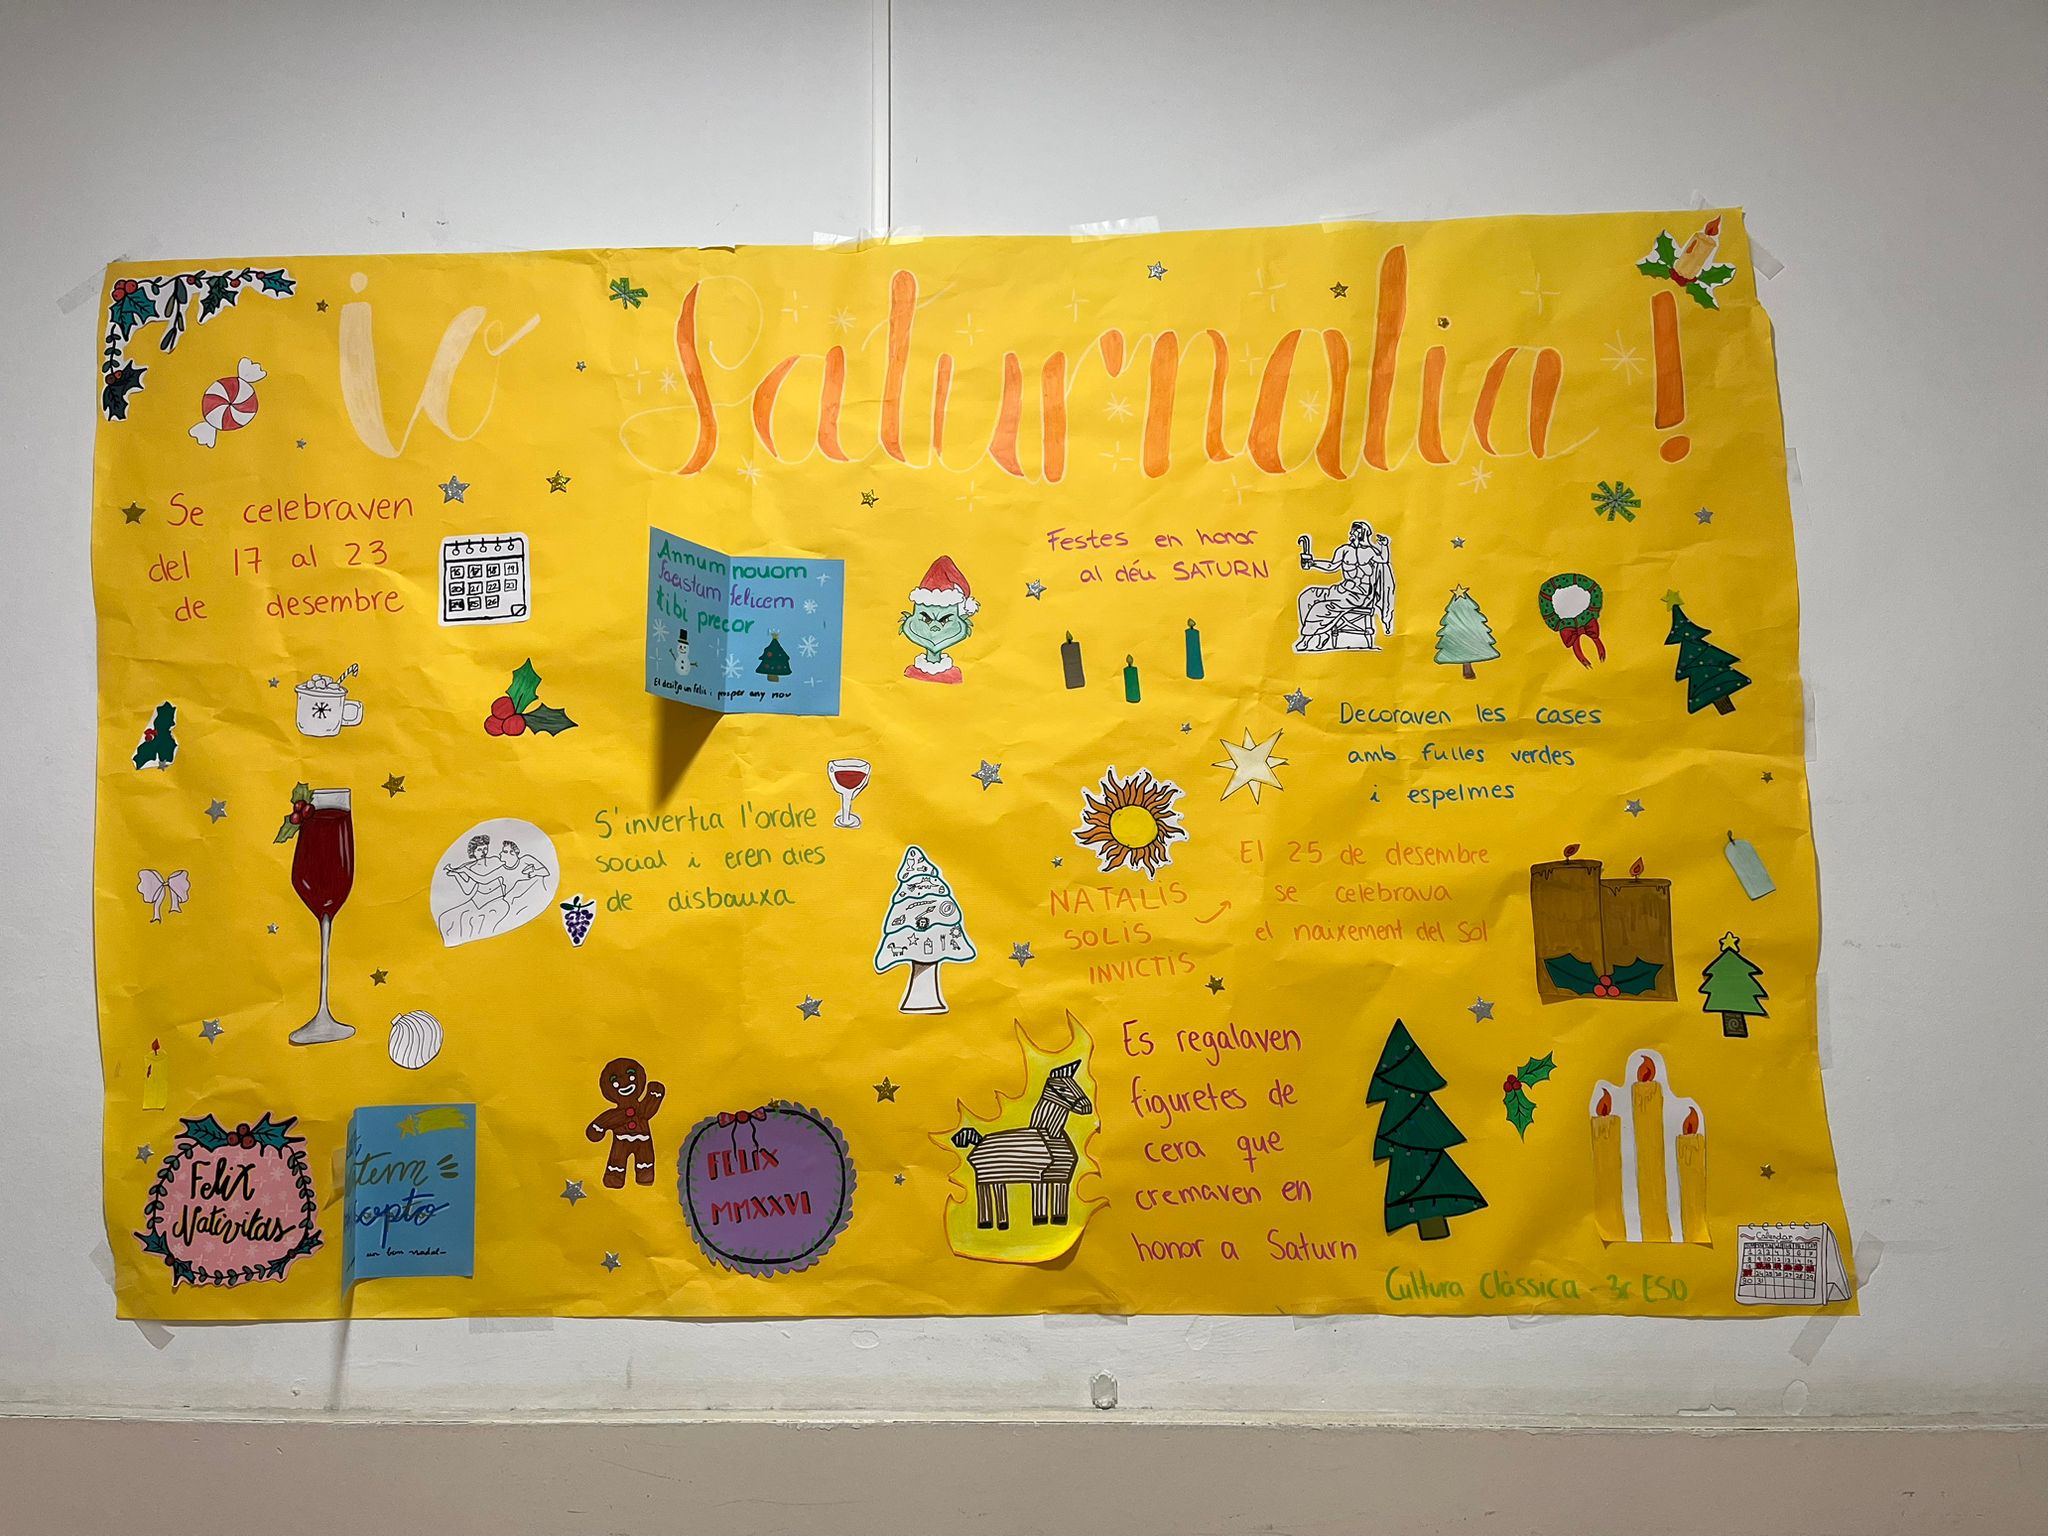 io Saturnalia!
Se celebraven
del 17 al 23
de desembre
Annum nouom
faustum felicem
tibi precor
El desitjo un feliç i prosper any nou
Festes en honor
al déu SATURN
Decoraven les cases
amb fulles verdes
i espelmes
S'invertia l'ordre
social i eren dies
de disbauxa
NATALIS
SOLIS
INVICTIS
El 25 de desembre
se celebrava
el naixement del Sol
Es regalaven
figuretes de
cera que
cremaven en
honor a Saturn
Felix
Nativitas
opto
un bon nadal
FELIX
MMXXVI
Cultura Clàssica - 3r ESO
Calendar